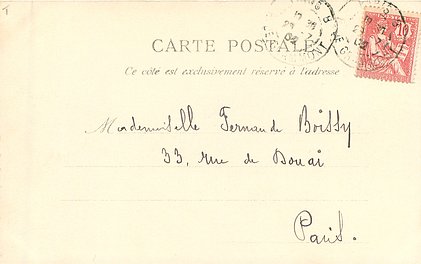 CARTE POSTALE
Ce côté est exclusivement réservé à l'adresse
Mademoiselle Fernande Boissy
33, rue de Douai
Paris.
10